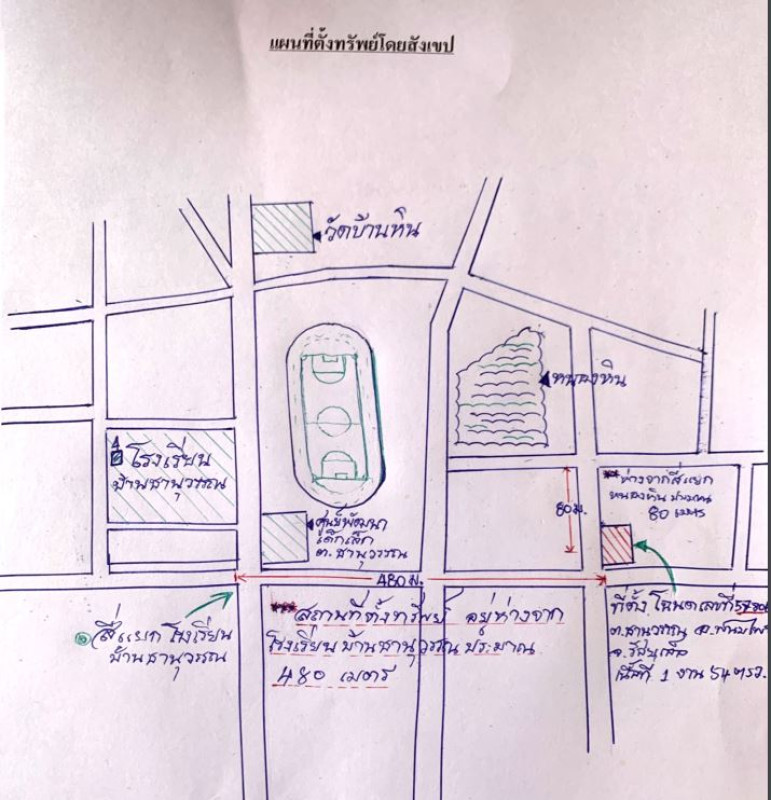 แผนที่ตั้งทรัพย์โดยสังเขป
วัดบ้านหิน
หนองหิน
โรงเรียน
บ้านธานุวรรณ
ศูนย์พัฒนา
เด็กเล็ก
ต.สานุวรรณ
***ห่างจากสี่แยก
หนองหิน ประมาณ
80 เมตร
80 ม.
480 ม.
สี่แยกโรงเรียน
บ้านธานุวรรณ
***สถานที่ตั้งทรัพย์ อยู่ห่างจาก
โรงเรียนบ้านธานุวรรณ ประมาณ
480 เมตร
ที่ตั้ง โฉนดเลขที่
เนื้อที่ 1 งาน 54 ตรว.